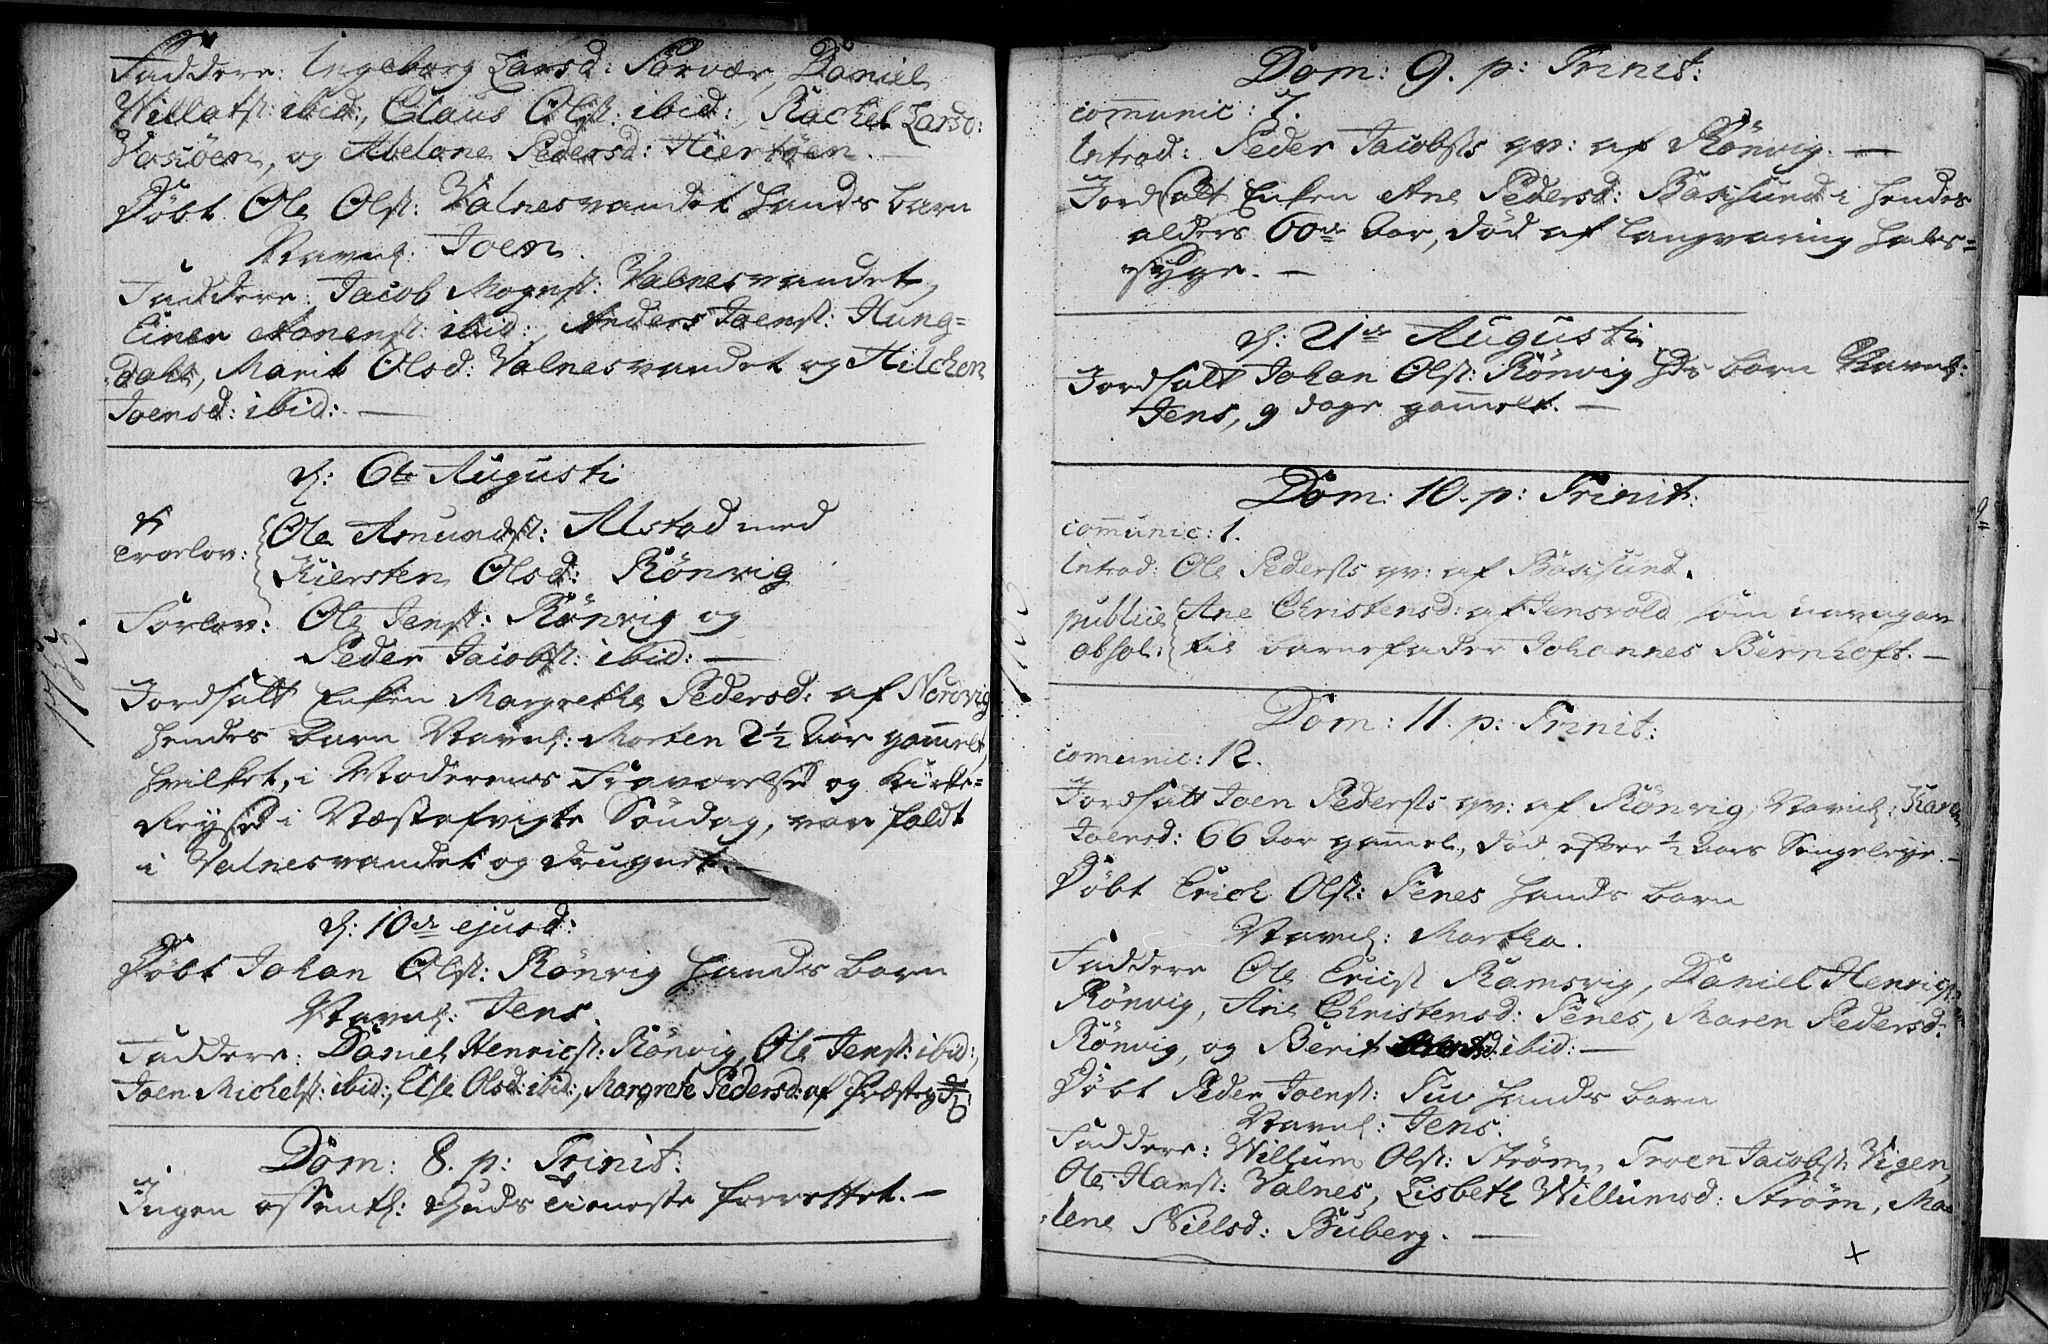 Faddere: Ingeborg Larsd: Sørvær, Daniel
Willatsf: ibid:, Claus Olsf: ibid:, Rachel Larsd:
og Abelone Pedersd: Hiertøen. —
Døbt Ole Olsf: Valnesvandet Hands barn
Navnl: Joen.
Faddere: Jacob Mognsf: Valnesvandet,
Einer Aronensf: ibid:, Anders Joensf: Hung=
dahl, Marit Olsd: Valnesvandet og Hilchen
Joensd: ibid: —
d: 6te Augusti
Troelov: Ole Amundsf: Alstad med
Kiersten Olsd: Rönvig
Forlov: Ole Jensf: Rönvig og
Peder Jacobsf: ibid: —
1783.
Jordfæstt Enken Margrethe Pedersd: af Nordvig
Hendes barn Navnl: Morten 2½ Aar gam̄elt,
hvilket, i Moderens Fraværelse og Kirke=
Reyse i Næstafvigte Søndag, var faldt
i Valnesvandet og druguet. —
d: 10de ejusd:
Døbt Johan Olsf: Rönvig Hands barn
Navnl: Jens.
Faddere: Daniel Henricsf: Rönvig, Ole Jensf: ibid:,
Joen Michelsf: ibid:, Else Olsd: ibid:, Margrete Pedersd: af Præsteg
Dom: 8. p: Trinit:
Ingen offentl: Guds tieneste forrettet. —
Dom: 9. p: Trinit:
com̄unic: 7.
Introd: Peder Jacobsfs qv: af Rönvig. —
Jordfæstt Enken Ane Pedersd: Baxsund i Hendes
alders 60de Aar, död af langvarig Hals=
syge. —
d: 21de Augusti
Jordfæstt Johan Olsf: Rönvig Hds barn Navnl:
Jens, 9 dage gam̄elt. —
Dom: 10. p: Trinit:
com̄unic: 1.
Introd: Ole Pedersfs qv: af Baxsund.
publice Ane Christensd: af Jensvold, som
absol: til barnefader Johannes Bernhoft. —
Dom: 11. p: Trinit:
com̄unic: 12.
Jordfæstt Joen Pedersfs qv: af Rönvig, Navnl: Karen
Joensd: 66 Aar gam̄el, död efter ½ Aars Sengeleye. —
Døbt Erich Olsf: Fenes Hands barn
Navnl: Martha.
Faddere Ole Ericsf Ramsvig, Daniel Henricsf:
Rönvig, Ane Christensd: Fenes, Maren Pedersd:
Rönvig, og Berit ibid: —
Døbt Peder Joensf: Tuv Hands barn
Navnl: Jens.
Faddere: Willum Olsf: Strøm, Troen Jacobsf: Vigen,
Ole Hansf: Valnes, Lisbeth Willumsd: Strøm, Ma=
lene Nielsd: Buberg. —